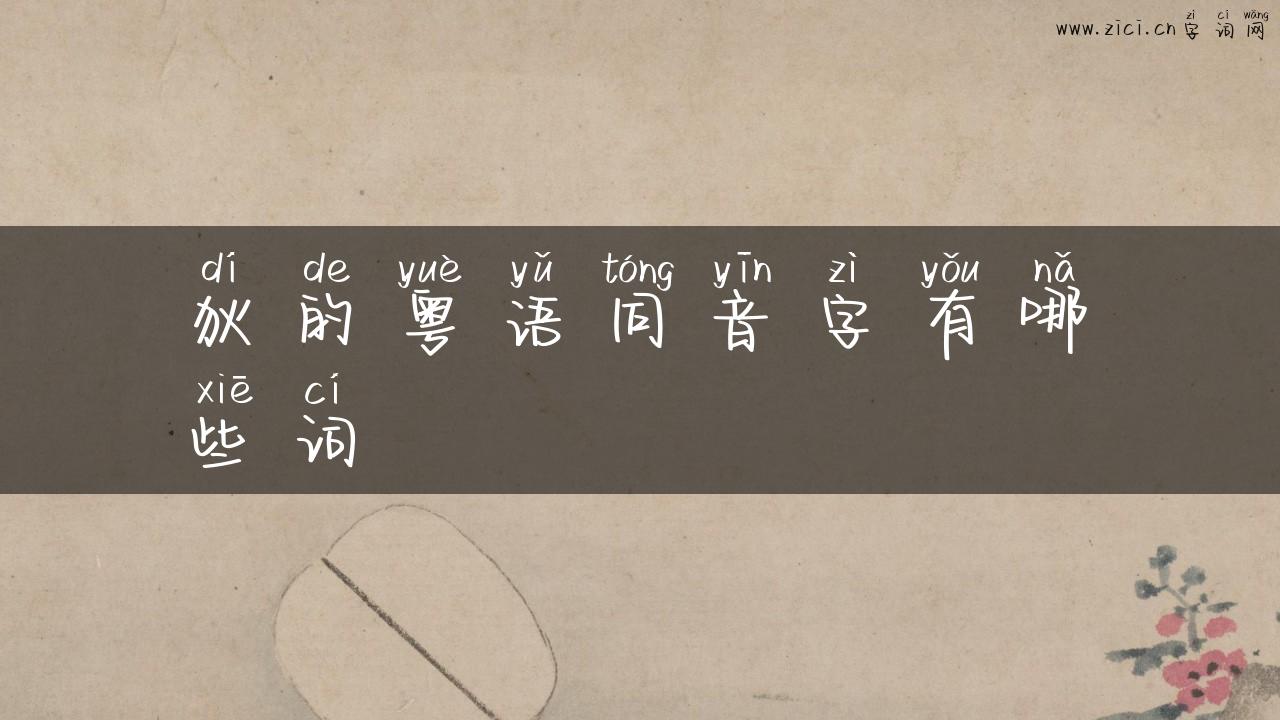 zì cí wǎng
www.zici.cn 字词网
dí de yuè yǔ tóng yīn zì yǒu nǎ
狄的粤语同音字有哪
xiē cí
些词